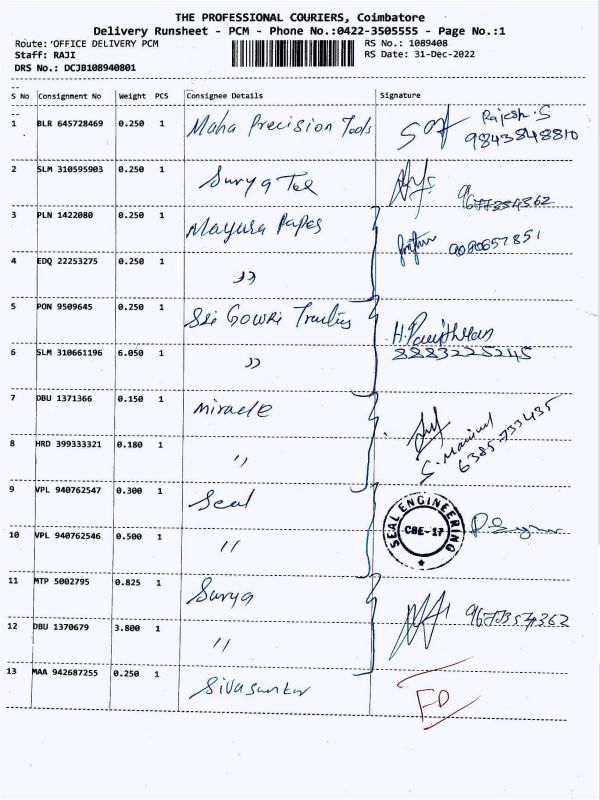 THE PROFESSIONAL COURIERS, Coimbatore
Delivery Runsheet - PCM - Phone No.:0422-3505555 - Page No.:1
Route: OFFICE DELIVERY PCM RS No.: 1089408
Staff: RAJI RS Date: 31-Dec-2022
DRS No.: DCJB108940801
S No Consignment No Weight PCS Consignee Details Signature
1 BLR 645728469 0.250 1 Maha Precision Tools Rajesh.S
9843848810
2 SLM 310595903 0.250 1 Surya Tee
3 PLN 1422080 0.250 1 Mayura Papes
9080657851
4 EDQ 22253275 0.250 1 〃
5 PON 9509645 0.250 1 Sri GOWRI
6 SLM 310661196 6.050 1 〃 8883225245
7 DBU 1371366 0.150 1 miracle
8 HRD 399333321 0.180 1 〃
9 VPL 940762547 0.300 1 Seal
SEAL ENGINEERING
CBE-17
10 VPL 940762546 0.500 1 〃
11 MTP 5002795 0.825 1 Surya
12 DBU 1370679 3.800 1 〃
13 MAA 942687255 0.250 1 Sivasankar
FD